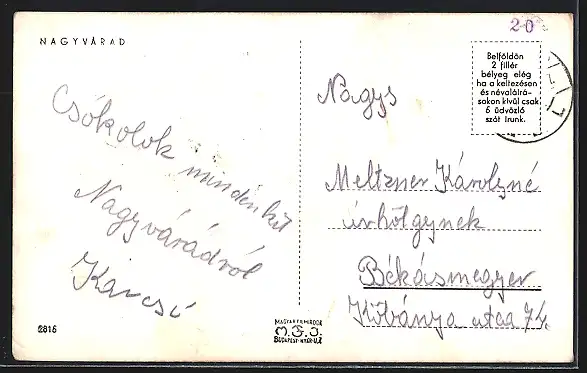 20
NAGYVÁRAD
Belföldön
2 fillér
bélyeg elég
ha a keltezésen
és névaláírá-
sokon kívül csak
5 üdvözlő
szót írunk.
Csókolok mindenkit
Nagyváradról
Karcsi
Nagys
Meltzner Károlyné
úrhölgynek
Békásmegyer
Kőbánya utca 74.
2815
MAGYAR FILMIRODA
M.F.I.
BUDAPEST